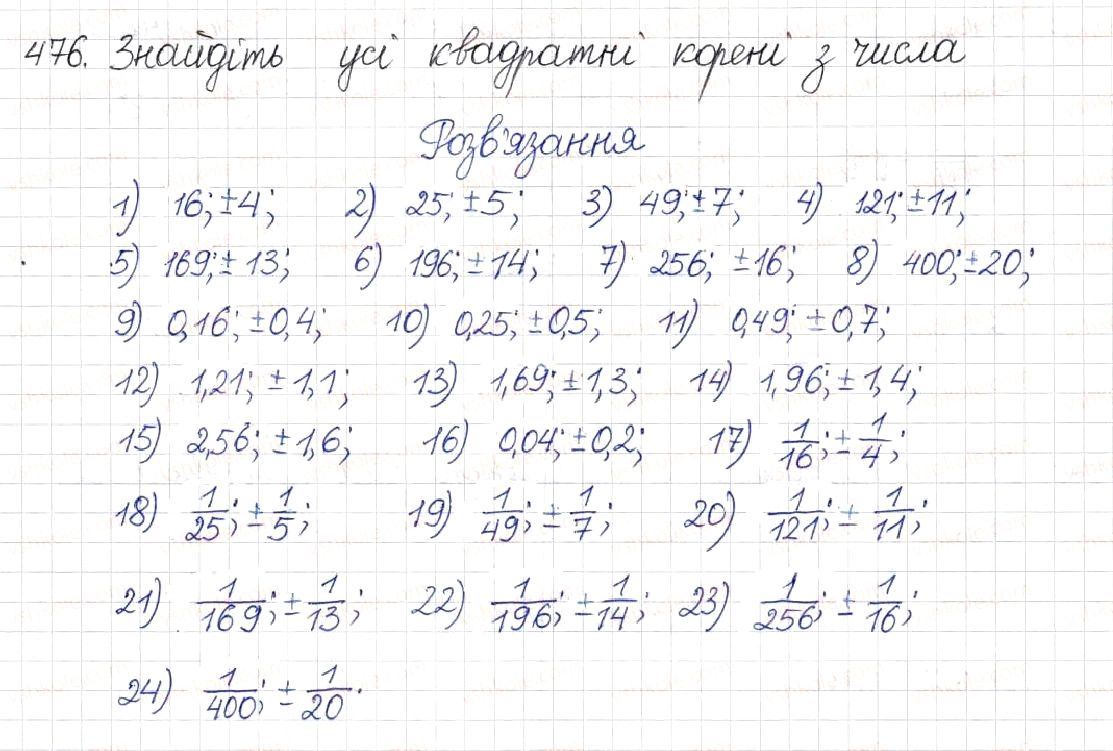 476. Знайдіть усі квадратні корені з числа
Розв'язання
1) 16; ±4; 2) 25; ±5; 3) 49; ±7; 4) 121; ±11;
5) 169; ±13; 6) 196; ±14; 7) 256; ±16; 8) 400; ±20;
9) 0,16; ±0,4; 10) 0,25; ±0,5; 11) 0,49; ±0,7;
12) 1,21; ±1,1; 13) 1,69; ±1,3; 14) 1,96; ±1,4;
15) 2,56; ±1,6; 16) 0,04; ±0,2; 17) 1/16; ±1/4;
18) 1/25; ±1/5; 19) 1/49; ±1/7; 20) 1/121; ±1/11;
21) 1/169; ±1/13; 22) 1/196; ±1/14; 23) 1/256; ±1/16;
24) 1/400; ±1/20.